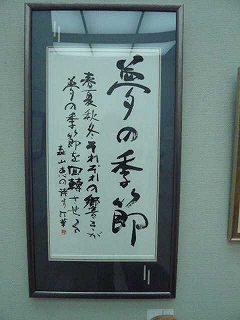 夢の季節
春夏秋冬それぞれの響きが
夢の季節を回轉させる